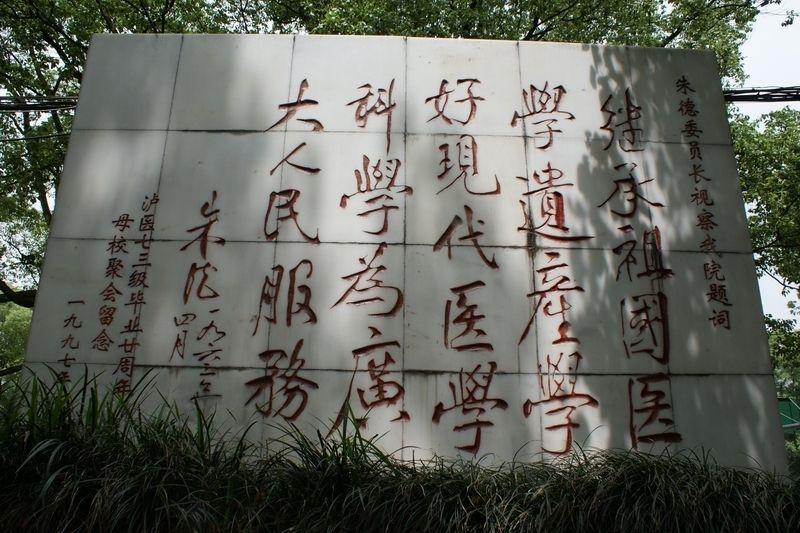 朱德委员长视察我院题词
继承祖國医
學遺産學
好現代医學
科學為廣
大人民服務
朱德
一九六三年
四月
泸医七三级毕业廿周年
母校聚会留念
一九九七年